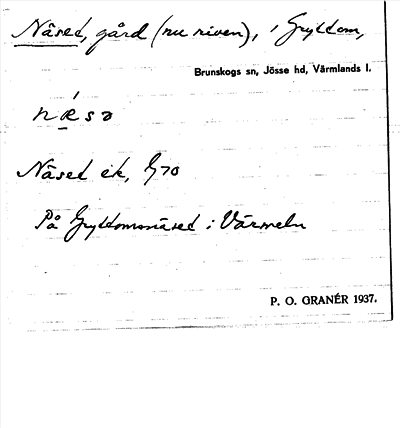 Näsed, gård (nu riven), i Gryttom,
Brunskogs sn, Jösse hd, Värmlands l.
nǽ̱sə
Näsed ek, G70
På Gryttomsnäset i Värmeln
P. O. GRANÉR 1937.